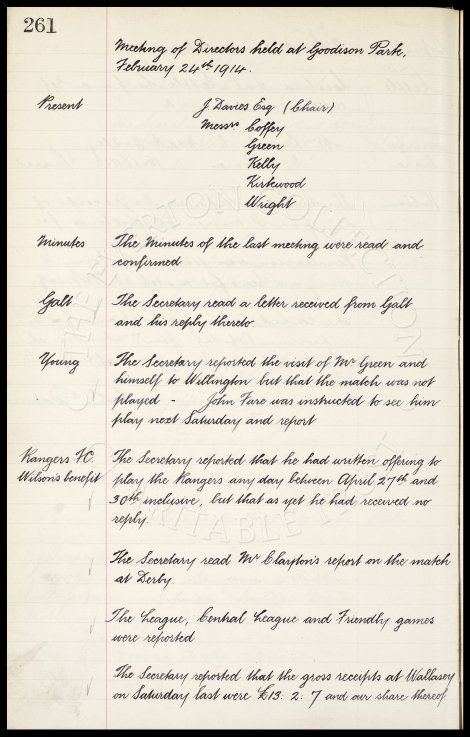 261
Meeting of Directors held at Goodison Park,
February 24th 1914.
Present J. Davies Esq (Chair)
Messrs Coffey
Green
Kelly
Kirkwood
Wright
Minutes The Minutes of the last meeting were read and
confirmed
Galt The Secretary read a letter received from Galt
and his reply thereto
Young The Secretary reported the visit of Mr Green and
himself to Willington but that the match was not
played - John Fare was instructed to see him
play next Saturday and report
Rangers F.C. The Secretary reported that he had written offering to
Wilson's benefit play the Rangers any day between April 27th and
30th inclusive, but that as yet he had received no
reply.
The Secretary read Mr Clayton's report on the match
at Derby.
The League, Central League and Friendly games
were reported
The Secretary reported that the gross receipts at Wallasey
on Saturday last were £13: 2: 7 and our share thereof
THE EVERTON COLLECTION
CHARITABLE TRUST